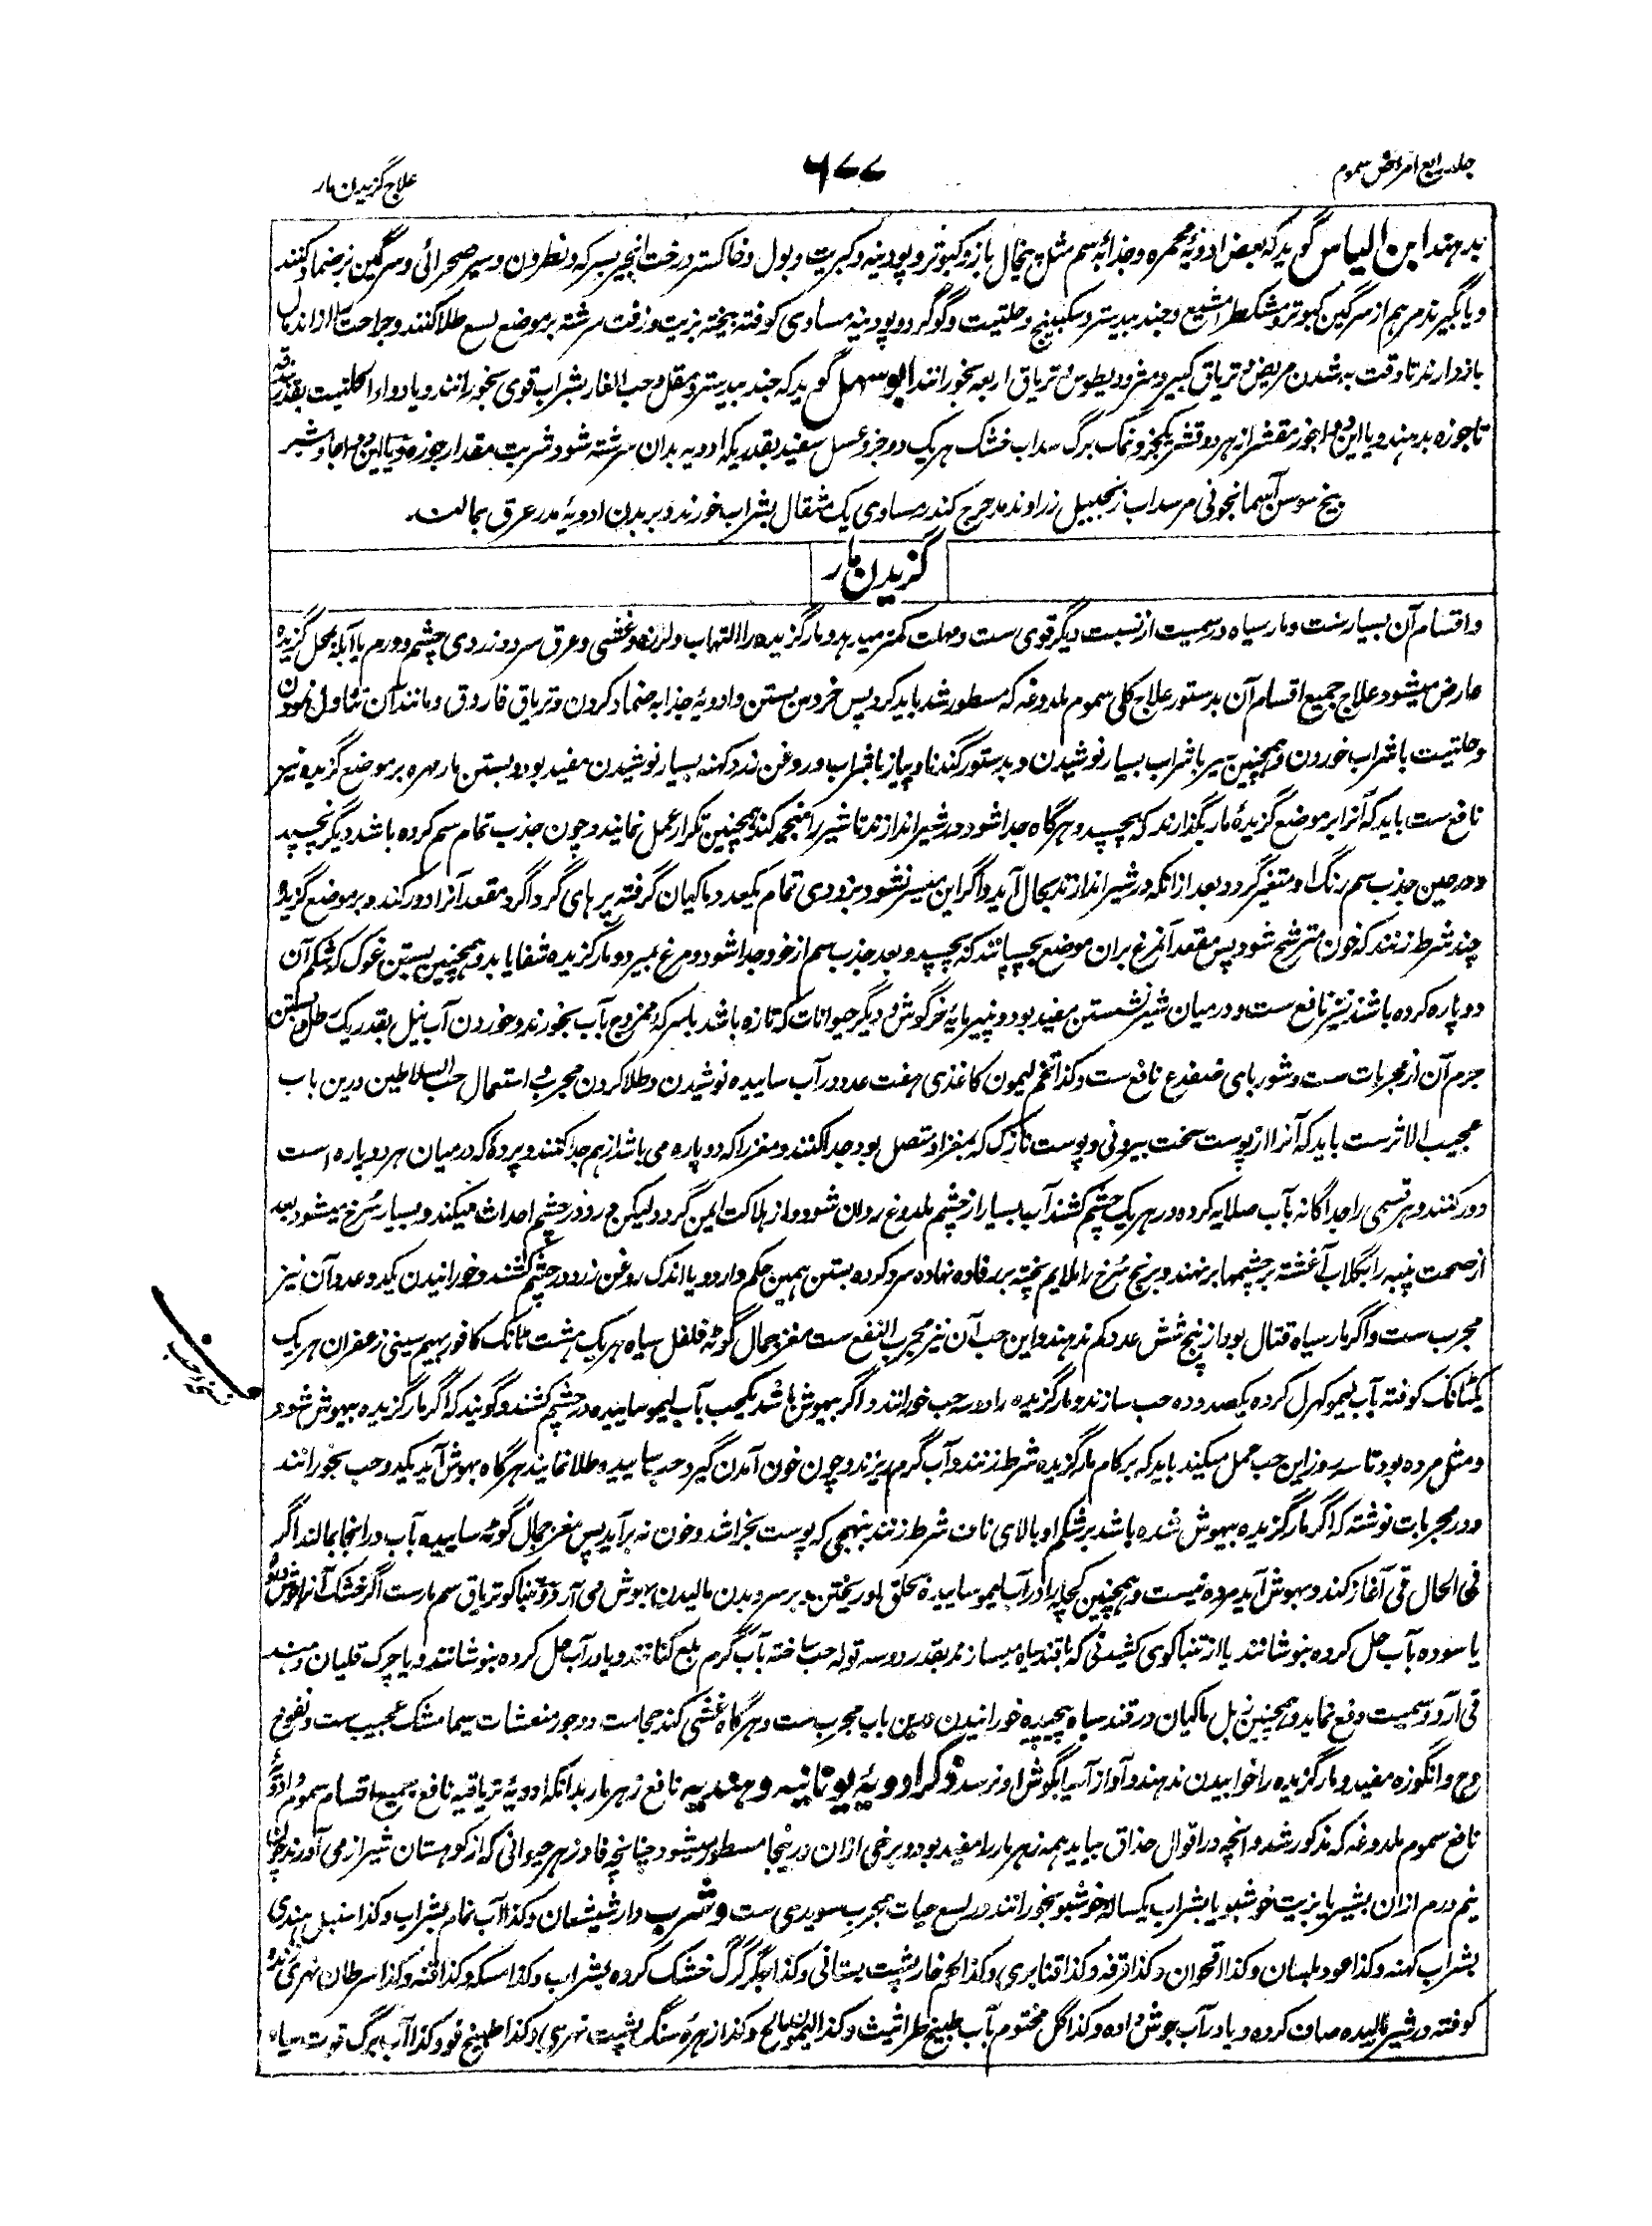 جلد رابع امراض سموم
۶۷۷
علاج گزیدن مار
بدہند ابن الیاس گوید کہ بعض ادویۂ محمرہ و جذابۂ سم مثل پیخال باز و کبوتر و پودینہ و کبریت و بول و خاکستر درخت انجیر بسرکہ و نطرون و سیر صحرائی و سرگین بز ضماد کنند
و یا بگیرند مرہم از سرگین کبوتر و مشکطرامشیع و جندبیدستر و سکبینج و حلتیت و گوگرد و پودینہ مساوی کوفتہ بیختہ بزیت و زفت سرشتہ بر موضع لسع طلا کنند و جراحت را از اندمال
باز دارند تا وقت بہ شدن مریض و تریاق کبیر و مثرودیطوس و تریاق اربعہ بخورانند ابو سہل گوید کہ جندبیدستر و مقل و حب الغار بشراب قوی بخورانند و یا دواء الحلتیت بقدر بندقہ
تا جوزہ بدہند و یا این دوا جوز مقشر از ہر دو قشر یکجزو نمک برگ سداب خشک ہر یک دو جزو عسل سفید بقدریکہ ادویہ بدان سرشتہ شود شربت مقدار جوزہ و یا این دوا جاوشیر
بیخ سوسن آسمانجونی مر سداب زنجبیل زراوند مدحرج کندر مساوی یک مثقال بشراب خورند و بر بدن ادویۂ مدر عرق بمالند
گزیدن مار
و اقسام آن بسیارست و مار سیاہ در سمیت از نسبت دیگر قوی ست و مہلت کمتر میدہد و مار گزیدہ را التہاب و لرزہ و غشی و عرق سرد و زردی چشم و ورم یا آبلہ بمحل گزیدہ
عارض میشود علاج جمیع اقسام آن بدستور علاج کلی سموم ملدوغہ کہ مسطور شد باید کرد پس خروس بستن و ادویۂ جذابہ ضماد کردن و تریاق فاروق و مانند آن تناول نمودن
و حلتیت با شراب خوردن و ہمچنین سیر با شراب بسیار نوشیدن و بدستور گندنا و پیاز با شراب و روغن زرد کہنہ بسیار نوشیدن مفید بود و بستن مار مہرہ بر موضع گزیدہ نیز
نافع ست باید کہ آنرا بر موضع گزیدۂ مار بگذارند کہ بچسپد و ہرگاہ جدا شود در شیر اندازند تا شیر را منجمد کند و ہمچنین تکرار عمل نمایند و چون جذب تمام سم کردہ باشد دیگر نچسپد
و در حین جذب سم رنگ او متغیر گردد و بعد از انکہ در شیر اندازند بحال آید و اگر این میسر نشود بزودی تمام یکعدد ماکیان گرفتہ پرہای گرداگرد مقعد آنرا دور کند و بر موضع گزیدہ
چند شرط زنند کہ خون مترشح شود پس مقعد آن مرغ بران موضع بچسپانند کہ بچسپد و بعد جذب سم از خود جدا شود و مرغ بمیرد و مار گزیدہ شفا یابد و ہمچنین بستن غوک کہ شکم آن
دو پارہ کردہ باشند نیز نافع ست و در میان شیر نشستن مفید بود و پنیر مایۂ خرگوش و دیگر حیوانات کہ تازہ باشد بسرکہ ممزوج بآب بخورند و خوردن آب نیل بقدر یک رطل و بستن
جرم آن از مجربات ست و شوربای ضفدع نافع ست و کذا تخم لیمون کاغذی ہفت عدد در آب ساییدہ نوشیدن و طلا کردن مجرب و استعمال حب السلاطین درین باب
عجیب الاثرست باید کہ آنرا از پوست سخت بیرونی و پوست نازک کہ بمغز او متصل بود جدا کنند و مغز را کہ دو پارہ می باشد از ہم جدا کنند و پردۂ کہ درمیان ہر دو پارہ است
دور کنند و ہر قسمی را جداگانہ بآب صلایہ کردہ در ہر یک چشم کشند آب بسیار از چشم ملدوغ روان شود و از ہلاکت ایمن گردد لیکن درد در چشم احداث میکند و بسیار سرخ میشود بعد
از صحت پنبہ را بگلاب آغشتہ بر چشمہا بر نہند و برنج سرخ را ملایم پختہ بر رفادہ نہادہ سرد کردہ بستن ہمین حکم دارد و یا اندک روغن زرد در چشم کشند و خورانیدن یکدو عدد آن نیز
مجرب ست و اگر مار سیاہ قتال بود از پنج شش عدد کم ندہند و این حب آن نیز مجرب النفع ست مغز جمال گوٹہ فلفل سیاہ ہر یک ہشت ٹانک کافور بہیم سینی زعفران ہر یک
یکٹانک کوفتہ بآب لیمو کہرل کردہ یکصد و دہ حب سازند و مار گزیدہ را دو سہ حب خورانند و اگر بیہوش باشد یکحب بآب لیمو ساییدہ در چشم کشند و گویند کہ اگر مار گزیدہ بیہوش شود
و مثل مردہ بود تا سہ روز این حب عمل میکند باید کہ بر کام مار گزیدہ شرط زنند و آب گرم بریزند و چون خون آمدن گیرد حب ساییدہ طلا نمایند ہرگاہ بہوش آید یکدو حب بخورانند
و در مجربات نوشتہ کہ اگر مار گزیدہ بیہوش شدہ باشد بر شکم او بالای ناف شرط زنند بنہجی کہ پوست بخراشد و خون نہ برآید پس مغز جمال گوٹہ ساییدہ بآب در انجا بمالند اگر
فی الحال قی آغاز کند و بہوش آید مردہ نیست و ہمچنین کچلہ را در آب لیمو ساییدہ بحلق او ریختن و بر سر و بدن مالیدن بہوش می آرد و تنباکو تریاق سم مارست اگر خشک آنرا
یا سودہ بآب حل کردہ بنوشانند یا از تنباکوی کشیدنی کہ با قند سیاہ میسازند بقدر دو سہ تولہ حب ساختہ بآب گرم بلع کنانند و یا در آب حل کردہ بنوشانند و یا چرک قلیان دہند
قی آرد و سمیت دفع نماید و ہمچنین زبل ماکیان در قند سیاہ پیچیدہ خورانیدن درین باب مجرب ست و ہرگاہ غشی کند حجامت و وجور منعشات سیما مشک عجیب ست و نفوخ
وج و انگوزہ مفید و مار گزیدہ را خوابیدن ندہند و آواز آسیا بگوش او نرسد ذکر ادویۂ یونانیہ و ہندیہ نافع زہر مار بدانکہ ادویۂ تریاقیہ نافع جمیع اقسام سموم و ادویۂ
نافع سموم ملدوغہ کہ مذکور شد و آنچہ در اقوال حذاق بیاید ہمہ زہر مار را مفید بود و برخی ازان درینجا مسطور میشود چنانچہ فادزہر حیوانی کہ از کوہستان شیراز می آورند چون
نیم درم ازان بشیر یا بزیت خوشبو یا بشراب یکسالہ خوشبو بخورانند در لسع حیات مجرب سویدی ست و شرب دارشیشعان و کذا آب نمام بشراب و کذا سنبل ہندی
بشراب کہنہ و کذا عود بلسان و کذا اقحوان و کذا قرفہ و کذا قنابری و کذا لحم خارپشت بستانی و کذا جگر گرگ خشک کردہ بشراب و کذا مسکہ و کذا قنہ و کذا سرطان نہری زندہ
کوفتہ در شیر مالیدہ صاف کردہ و یا در آب جوش دادہ و کذا گل مختوم بآب طبیخ طراثیث و کذا لیمون مالح و کذا زہرۂ سنگ پشت نہری و کذا طبیخ فو و کذا آب برگ توت سیاہ